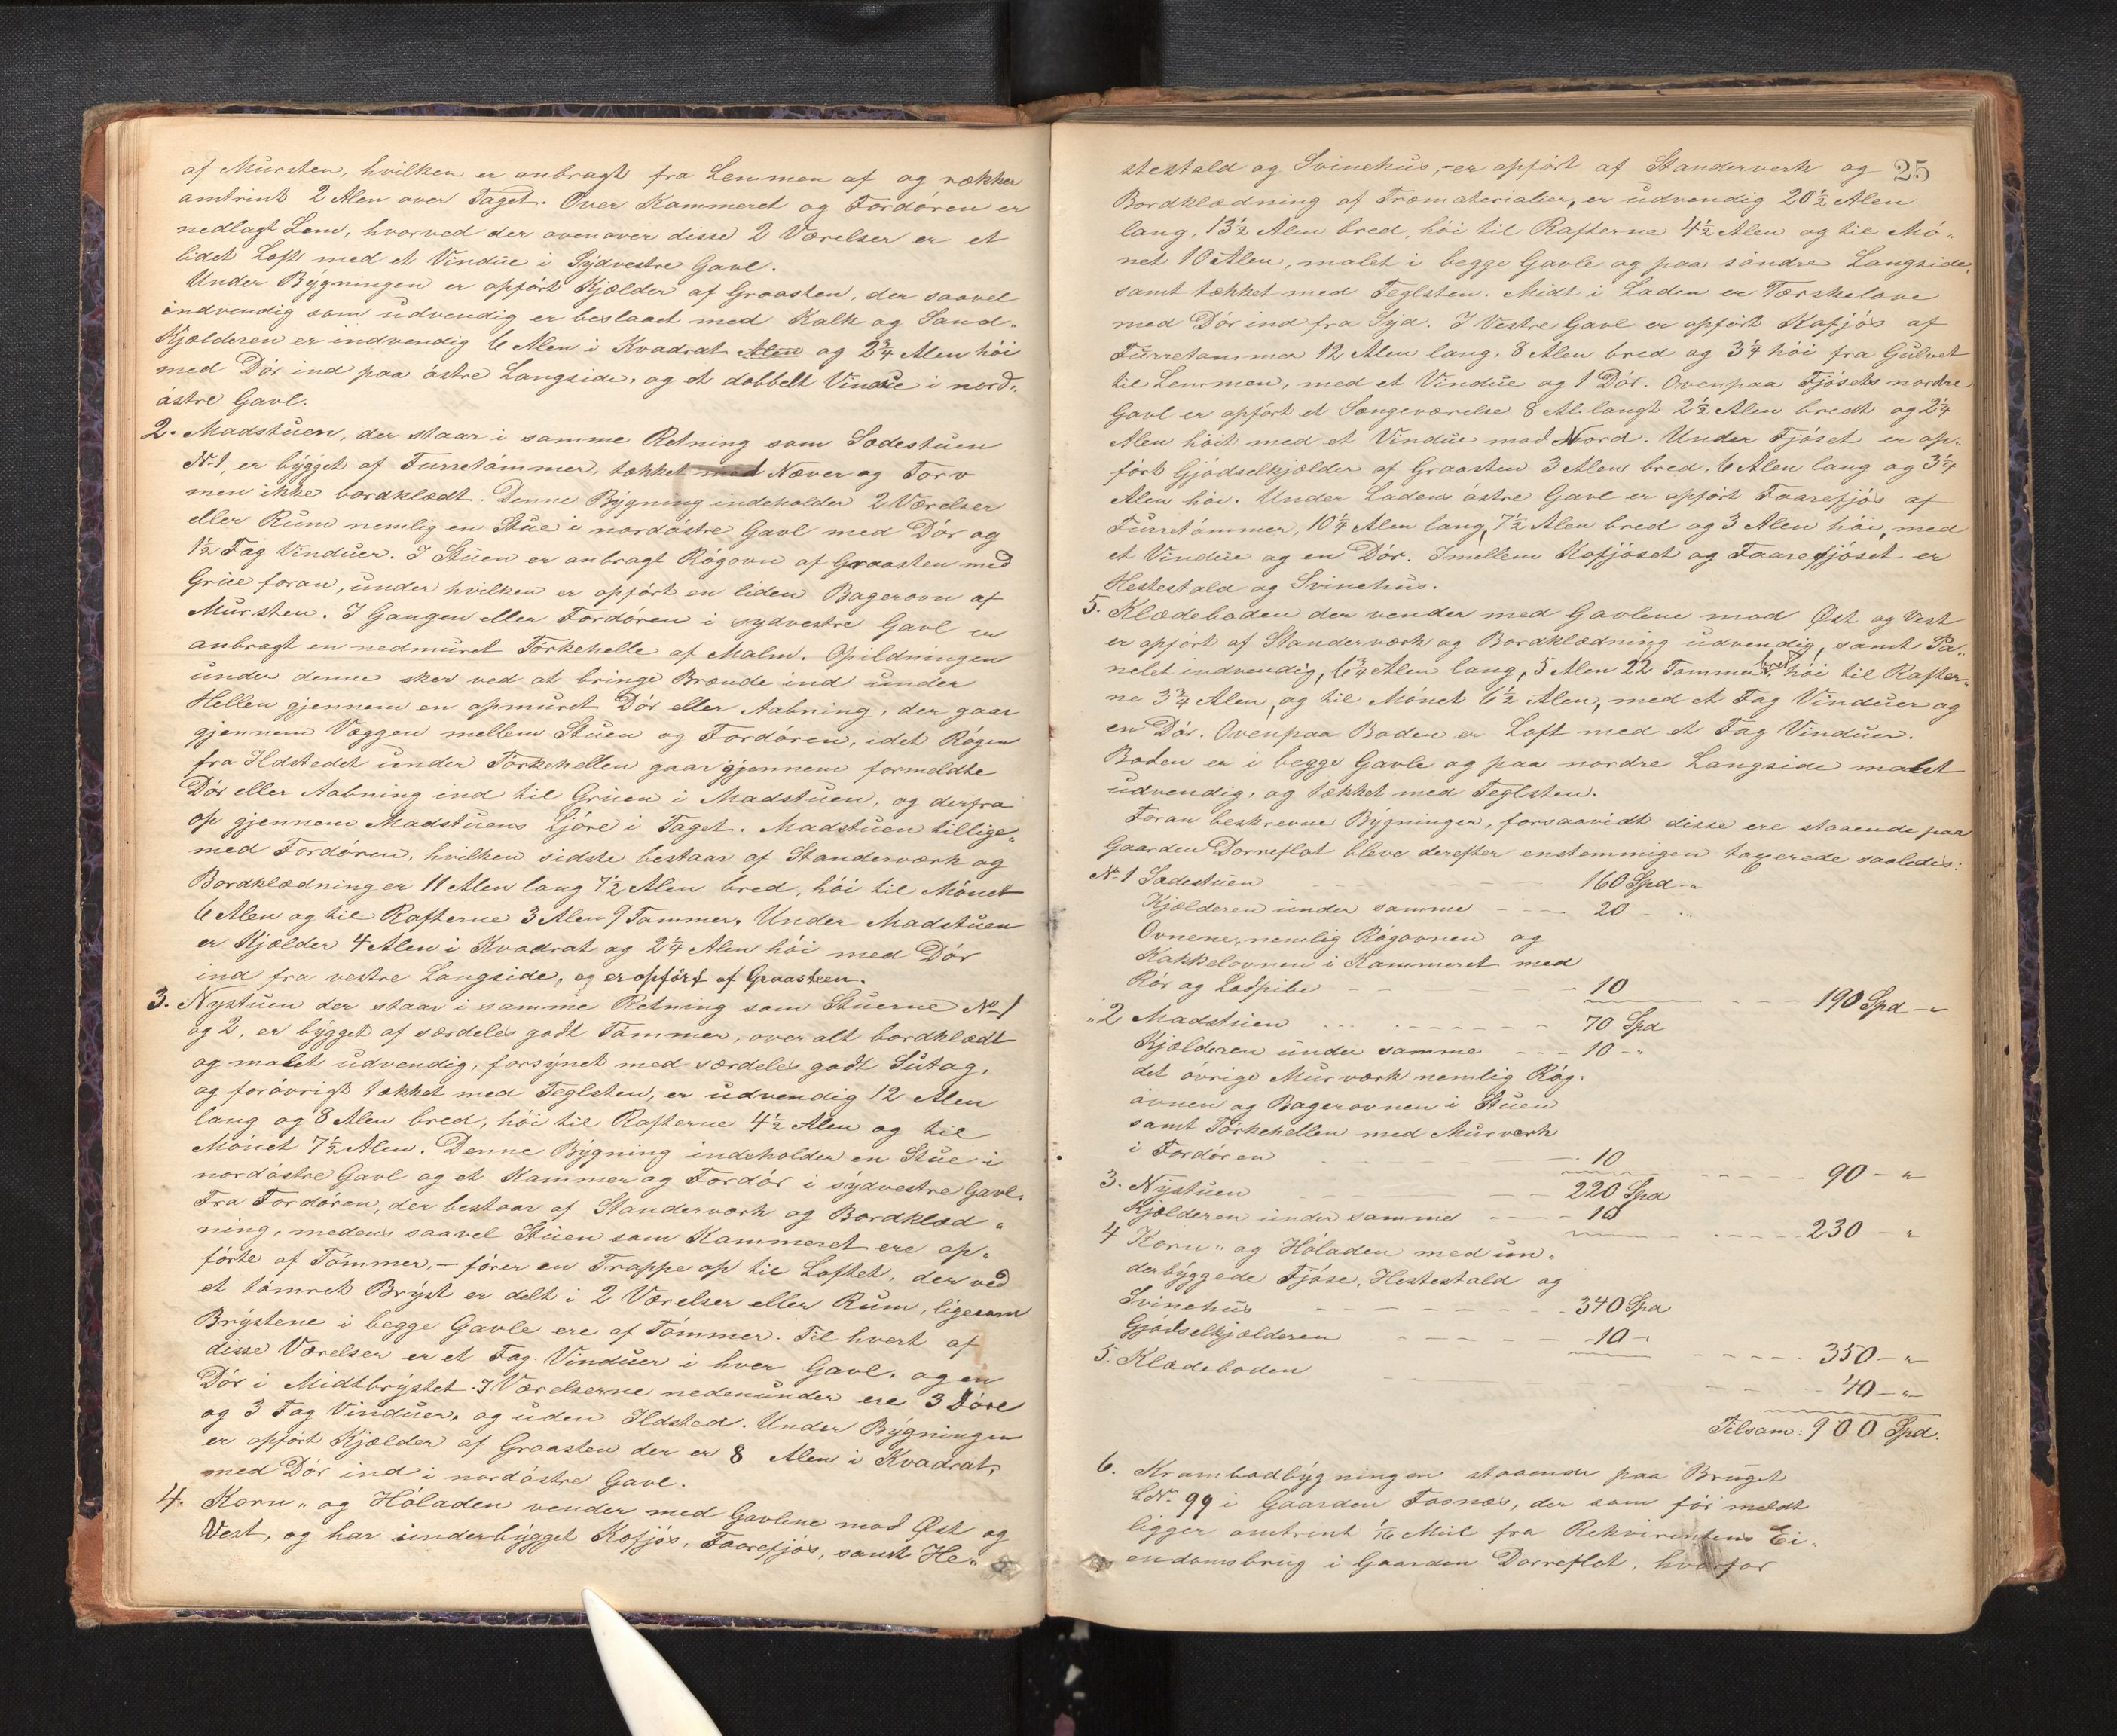 af Mursten, hvilken er anbragt fra Lemmen af og rækker
amtrint 2 Alen over Taget. Over Kammeret og Fordören er
nedlagt Lem, hvorved der ovenover disse 2 Værelser er et
lidet Loft med et Vindue i Sydvestre Gavl.
Under Bygningen er opfört Kjælder af Graasten, der saavel
indvendig som udvendig er beslaaet med Kalk og Sand.
Kjælderen er indvendig 6 Alen i Kvadrat Alen og 2¾ Alen höi
med Dör ind paa östre Langside, og et dobbelt Vindue i nord-
östre Gavl.
2. Madstuen, der staar i samme Retning som Sædestuen
No 1, er bygget af Furretömmer, tækket med Næver og Torv
men ikke bordklædt. Denne Bygning indeholder 2 Værelser
eller Rum nemlig en Stue i nordöstre Gavl med Dör og
1½ Fag Vinduer. I Stuen er anbragt Rögovn af Graasten med
Grue foran, under hvilken er opfört en liden Bagerovn af
Mursten. I Gangen eller Fordören i sydvestre Gavl er
anbragt en nedmuret Törkehelle af Malm. Opildningen
under denne sker ved at bringe Brænde ind under
Hellen gjennem en opmuret Dör eller Aabning, der gaar
gjennem Væggen mellem Stuen og Fordören, idet Rögen
fra Ildstedet under Törkehellen gaar gjennem formeldte
Dör eller Aabning ind til Gruen i Madstuen, og derfra
op gjennem Madstuens Ljöre i Taget. Madstuen tillige-
med Fordören, hvilken sidste bestaar af Standerværk og
Bordklædning er 11 Alen lang 7½ Alen bred, höi til Mönet
6 Alen og til Rafterne 3 Alen 9 Tommer. Under Madstuen
er Kjælder 4 Alen i Kvadrat og 2¼ Alen höi med Dör
ind fra vestre Langside, og er opfört af Graasteen.
3. Nystuen der staar i samme Retning som Stuerne No 1
og 2, er bygget af særdeles godt Tömmer, overalt bordklædt
og malet udvendig, forsynet med særdeles godt Sutag,
og forövrigt tækket med Teglsten, er udvendig 12 Alen
lang og 8 Alen bred, höi til Rafterne 4½ Alen og til
Mönet 7½ Alen. Denne Bygning indeholder en Stue i
nordöstre Gavl og et Kammer og Fordör i sydvestre Gavl.
Fra Fordören, der bestaar af Standerværk og Bordklæd-
ning, medens saavel Stuen som Kammeret ere op-
förte af Tömmer, - förer en Trappe op til Loftet, der ved
et tömret Bryst er delt i 2 Værelser eller Rum, ligesom
Brystene i begge Gavle ere af Tömmer. Til hvert af
disse Værelser er et Fag Vinduer i hver Gavl, og en
Dör i Midtbrystet. I Værelserne nedenunder ere 3 Döre
og 3 Fag Vinduer, og uden Ildsted. Under Bygningen
er opfört Kjælder af Graasten der er 8 Alen i Kvadrat,
med Dör ind i nordöstre Gavl.
4. Korn- og Höladen vender med Gavlene mod Øst og
Vest, og har underbygget Kofjös, Faarefjös, samt He-
25
stestald og Svinehus, - er opfört af Standerverk og
Bordklædning af Træmaterialier, er udvendig 20½ Alen
lang, 13½ Alen bred, höi til Rafterne 4½ Alen og til Mö-
net 10 Alen, malet i begge Gavle og paa söndre Langside,
samt tækket med Teglsten. Midt i Laden er Tærskelave
med Dör ind fra Syd. I Vestre Gavl er opfört Kofjös af
Furretømmer 12 Alen lang, 8 Alen bred og 3¼ höi fra Gulvet
til Lemmen, med et Vindue og 1 Dör. Ovenpaa Fjösets nordre
Gavl er opfört et Sængeværelse 8 Al. langt 2½ Alen bredt og 2¼
Alen höit med et Vindue mod Nord. Under Fjöset er op-
fört Gjödselkjælder af Graasten 3 Alen bred, 6 Alen lang og 3¼
Alen höi. Under Ladens östre Gavl er opfört Faarefjös af
Furretömmer, 10¼ Alen lang, 7½ Alen bred og 3 Alen höi, med
et Vindue og en Dör. Imellem Kofjöset og Faarefjöset er
Hestestald og Svinehus.
5. Klædeboden der vender med Gavlene mod Øst og Vest
er opfört af Standerværk og Bordklædning udvendig, samt Pa-
nelet indvendig, 6¾ Alen lang, 5 Alen 22 Tommer bred, höi til Rafter-
ne 3¾ Alen, og til Mönet 6½ Alen, med et Fag Vinduer og
en Dör. Ovenpaa Boden er Loft med et Fag Vinduer.
Boden er i begge Gavle og paa nordre Langside malet
udvendig, og tækket med Teglsten.
Foran beskrevne Bygninger, forsaavidt disse ere staaende paa
Gaarden Dorreflot bleve derefter enstemmigen taxerede saaledes:
No 1 Sædestuen 160 Spd - "
Kjælderen under samme 20 - "
Ovnene, nemlig Rögovnen og
Kakkelovnen i Kammeret med
Rör og Ladpibe 10
190 Spd - "
" 2 Madstuen 70 Spd
Kjælderen under samme 10 - "
det övrige Murværk nemlig Rög-
ovnen og Bagerovnen i Stuen
samt Törkehellen med Murværk
i Fordören 10
90 - "
3. Nystuen 220 Spd
Kjælderen under samme 10
230 - "
4 Korn- og Höladen med un-
derbyggede Fjöse, Hestestald og
Svinehus 340 Spd
Gjödselkjælderen 10 -
350 - "
5. Klædeboden
40 - "
Tilsam: 900 Spd.
6. Krambodbygningen staaende paa Bruget
LNo. 99 i Gaarden Fosnæs, der som för meldt
ligger omtrent 1/16 Miil fra Rekvirentens Ei-
endomsbrug i Gaarden Dorreflot, hvorfor